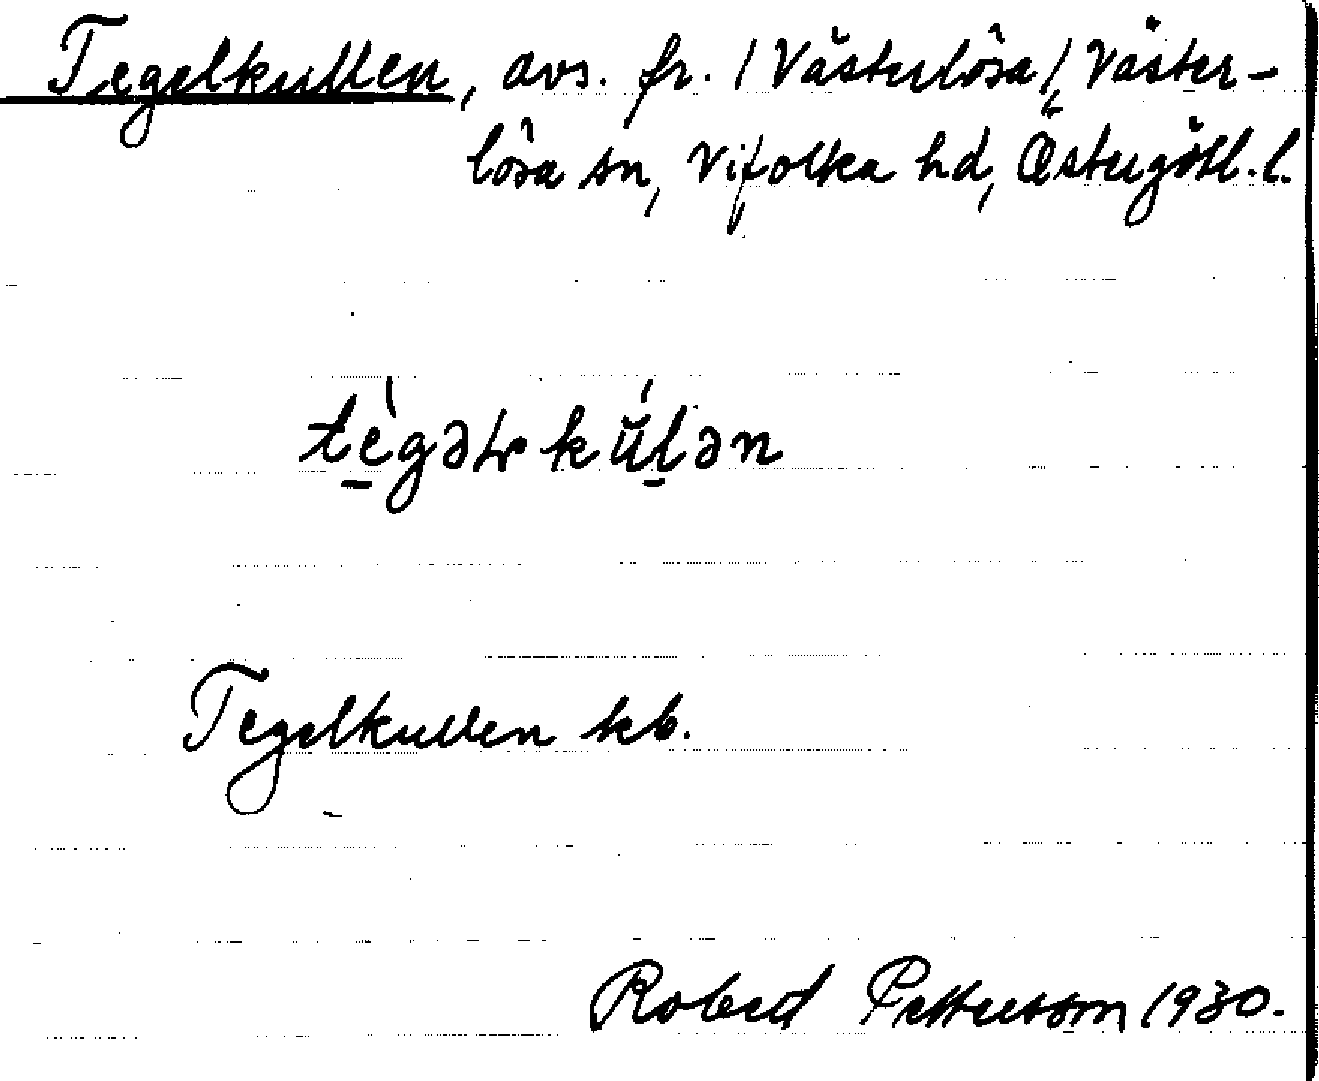 Tegelkullen, avs. fr. /Västerlösa/, Väster-
lösa sn, Vifolka hd, Östergötl. l.
tègəl kúlən
Tegelkullen kb.
Robert Pettersson 1930.